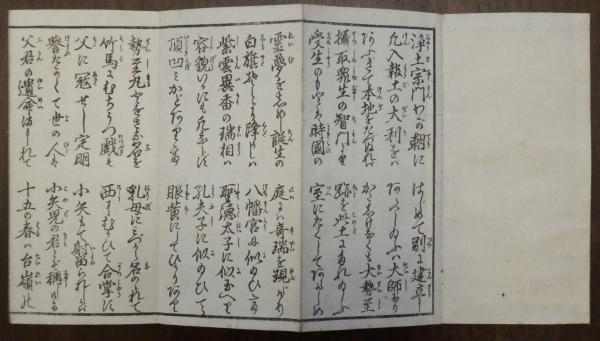 浄土宗門わが朝に はじめて別に建立し
凡入報土の大利をバ あらハし給ふハ大師なり
あふぎて本地をたづぬれバ かたじけなくも大勢至
摂取衆生の智門より 跡を此土にたれ給ふ
受生のもとを時國の 室にたくして
霊夢をしめし誕生の 庭にハ奇瑞を現じけり
白旗そらより降りしハ 八幡宮に似給ひぬ
紫雲異香の瑞相ハ 聖徳太子に似玉へり
容貌いかにも凡ならず 孔夫子に似給ひて
頂凹にかどありて 眼黄にしてひかりあり
勢至丸と 名を 乳母に 名のれて
竹馬にむちうつ戯も 西にむかひて合掌し
父に寇せし定明 小矢にて射られしが
誉たかくて世の人は 小矢児の君と称しける
父君の遺命まもりて 十五の春ハ台嶺に